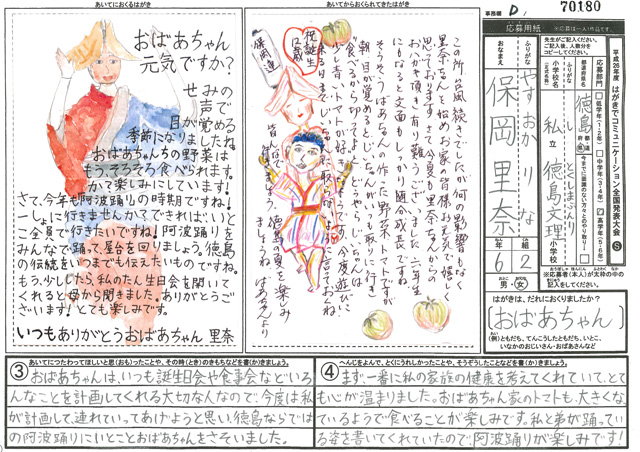 事務欄 D. 70180
応募用紙
平成26年度 はがきでコミュニケーション全国発表大会 S
応募部門
低学年(1・2年)
中学年(3・4年)
高学年(5・6年)
都道府県名
徳島
ふりがな
し りつ とくしまぶんり
小学校名
私立 徳島文理 小学校
ふりがな
やすおか りな
おなまえ
保岡里奈
6年 2組
男・女
※応募者(本人)が太枠の中の
はがきは、だれにおくりましたか?
(おばあちゃん)
(例)ともだち、てんこうしたともだち、いとこ、
いなかのおじいさん・おばあさんなど
あいてにおくるはがき
おばあちゃん
元気ですか?
せみの
声で
目が覚める
季節になりましたね。
おばあちゃんちの野菜は
もう、そろそろ食べられます
か?楽しみにしています!
さて、今年も阿波踊りの時期ですね!
一しょに行きませんか?できれば、いと
こ全員で行きたいですね!阿波踊りを
みんなで踊って、屋台を回りましょう。徳島
の伝統をいつまでも伝えたいものですね。
もう、少ししたら、私のたん生日会を開いて
くれると母から聞きました。ありがとうご
ざいます!とても楽しみです。
いつもありがとうおばあちゃん 里奈
あいてからおくられてきたはがき
この所台風続きでしたが何の影響もなく
里奈ちゃんを始めお家の皆様お元気で嬉しく
思っております。さて今夏も里奈ちゃんからの
おハガキ頂き有り難うございました。六年生
にもなると文面もしっかり随分成長ですね
そうそうばあちゃんの作った野菜トマトですが
祝誕生
12歳
保岡連
③ あいてにつたわってほしいと思(おも)ったことや、その時(とき)のきもちなどを書(か)きましょう。
おばあちゃんは、いつも誕生日会や食事会などいろ
んなことを計画してくれる大切な人なので、今度は私
が計画して、連れていってあげようと思い徳島ならでは
の阿波踊りにいとことおばあちゃんをさそいました。
④ へんじをよんで、とくにうれしかったことや、そうぞうしたことなどを書(か)きましょう。
まず、一番に私の家族の健康を考えてくれていて、とて
も心が温まりました。おばあちゃん家のトマトも、大きくな
ているようで食べることが楽しみです。私と弟が踊ってい
る姿を書いてくれていたので、阿波踊りが楽しみです!